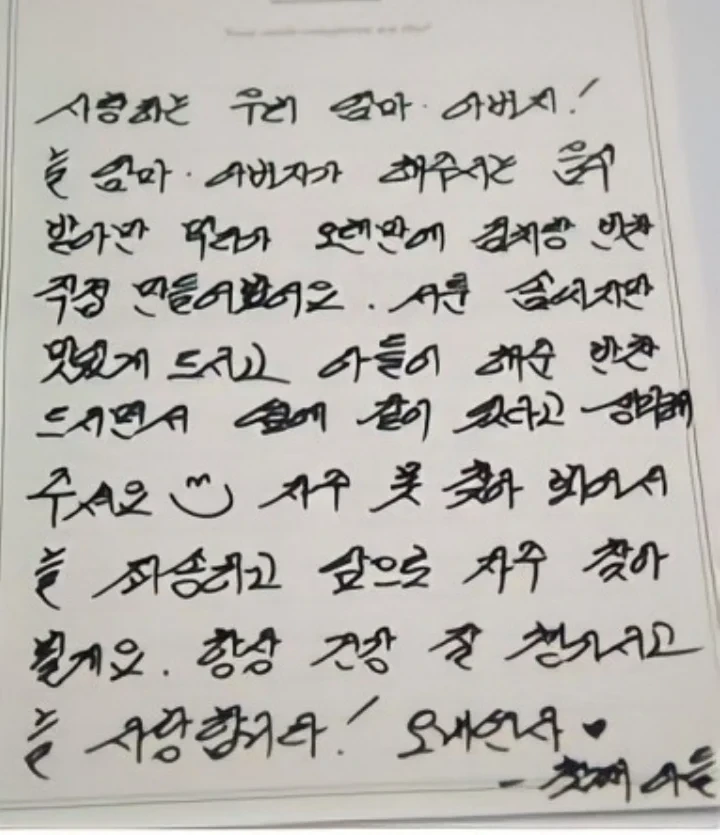 사랑하는 우리 엄마·아버지!
늘 엄마·아버지가 해주시는 음식
받아만 먹다가 오랜만에 김치랑 반찬
직접 만들어봤어요. 서툰 솜씨지만
맛있게 드시고 아들이 해준 반찬
드시면서 옆에 같이 있다고 생각해
주세요 자주 못 찾아 봬어서
늘 죄송하고 앞으로 자주 찾아
뵐게요. 항상 건강 잘 챙기시고
늘 사랑합니다! 오래안사 ♥
- 첫째 아들